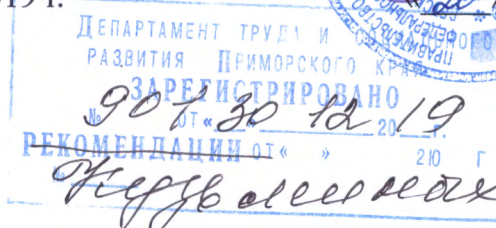 19 г.
ДЕПАРТАМЕНТ ТРУДА И СОЦИАЛЬНОГО
РАЗВИТИЯ ПРИМОРСКОГО КРАЯ
ЗАРЕГИСТРИРОВАНО
№ 901 от « 30 12 20 19 г.
РЕКОМЕНДАЦИИ ОТ « » 20 Г